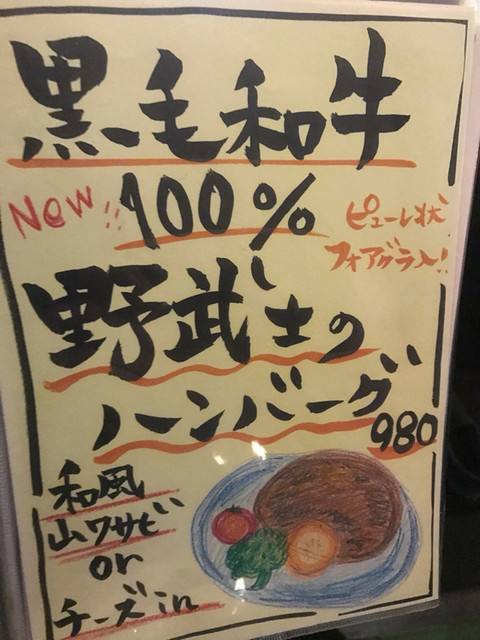 黒毛和牛
New!! 100%
ピューレ状
フォアグラ入!
野武士の
ハンバーグ
980
和風
山ワサビ
or
チーズin